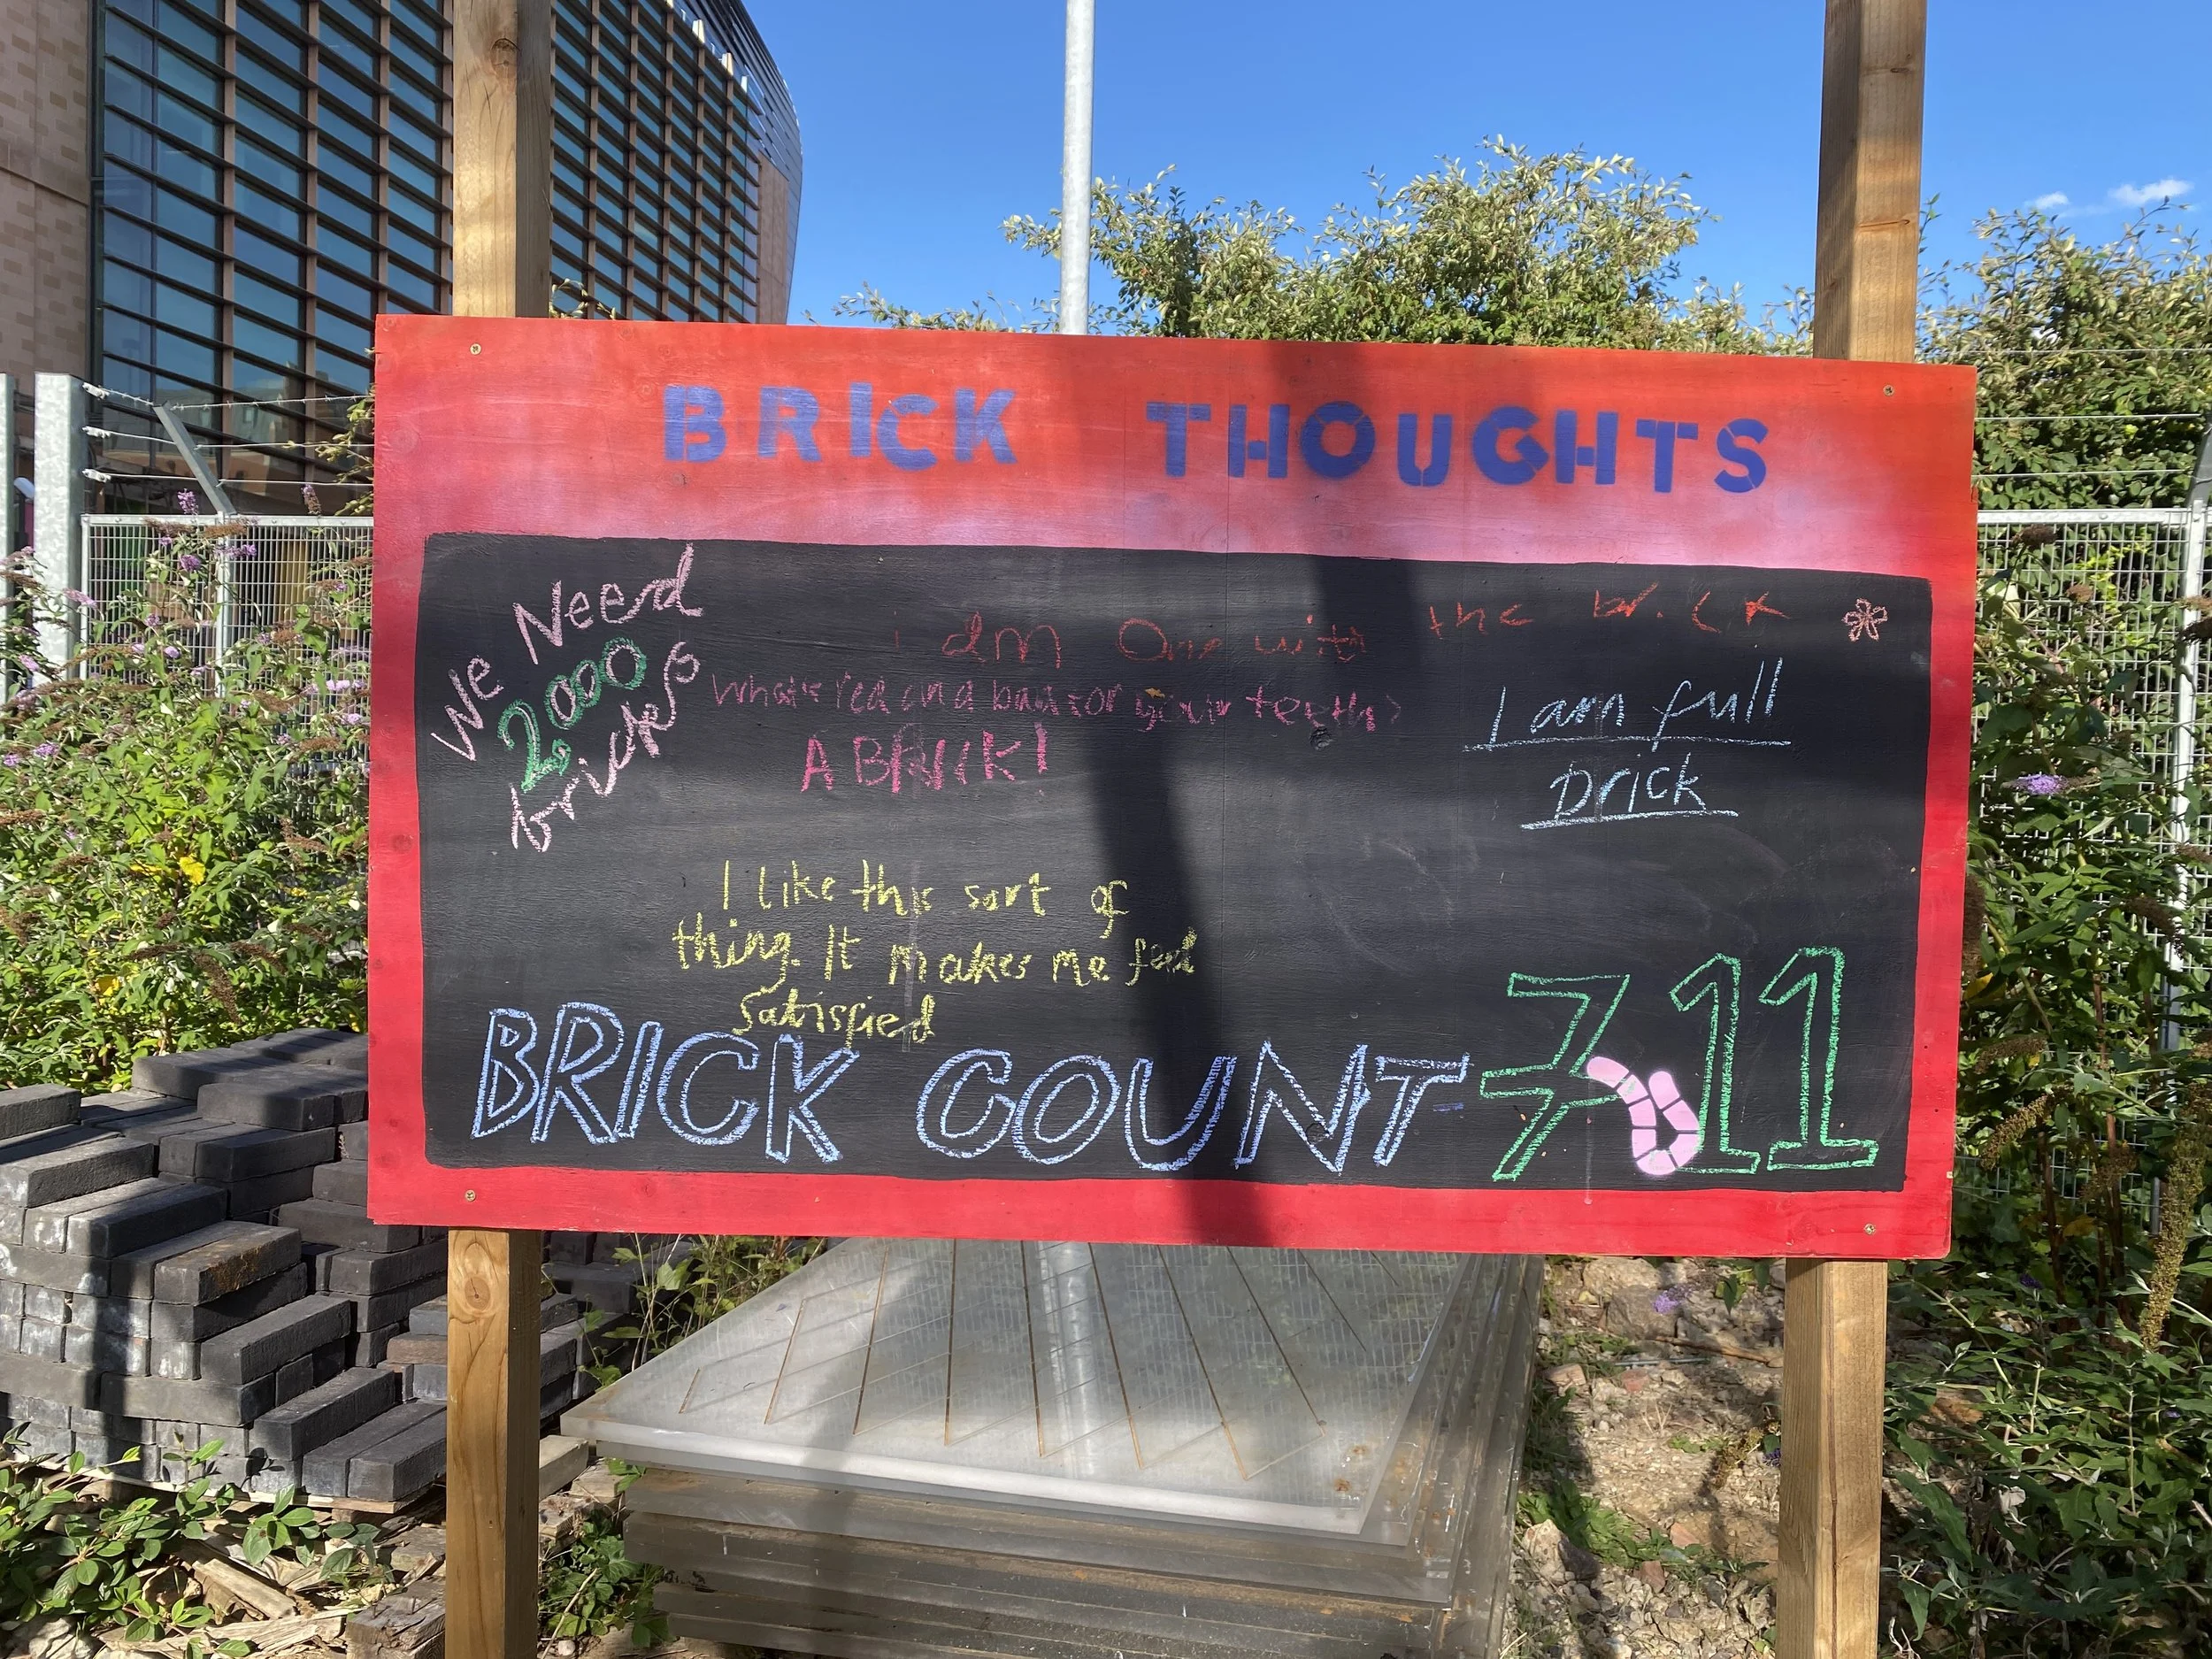 BRICK THOUGHTS
We Need
2000
bricks
I am One with the brick
What's red and bad for your teeth?
A BRICK!
I am full
Brick
I like this sort of
thing. It makes me feel
satisfied
BRICK COUNT - 711